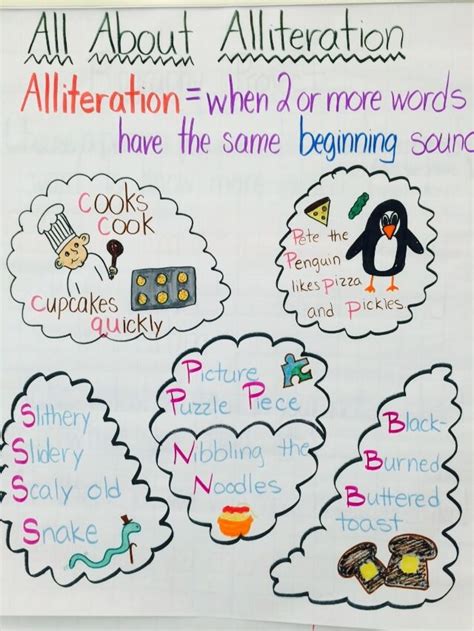 All About Alliteration
Alliteration = when 2 or more words
have the same beginning sound
Cooks
Cook
Cupcakes
quickly
Pete the
Penguin
likes Pizza
and Pickles.
Picture
Puzzle Piece
Nibbling the
Noodles
Slithery
Slidery
Scaly old
Snake
Black-
Burned
Buttered
toast